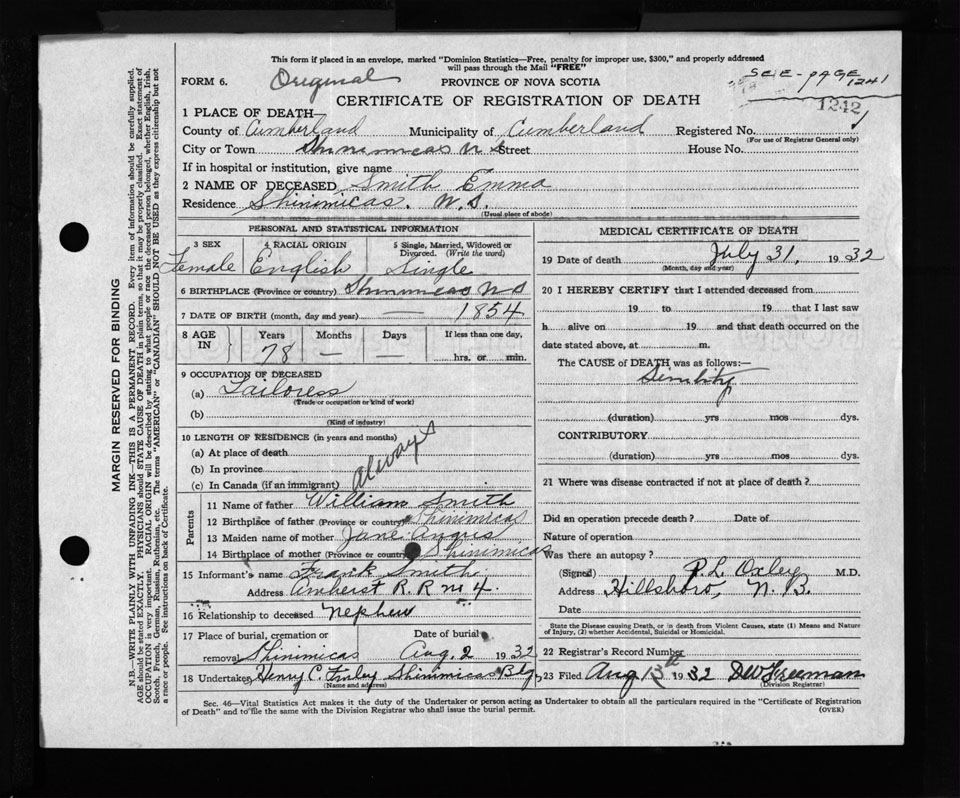 This form if placed in an envelope, marked "Dominion Statistics—Free, penalty for improper use, $300," and properly addressed
will pass through the Mail "FREE"
FORM 6. Original PROVINCE OF NOVA SCOTIA SEE - PAGE 1241
CERTIFICATE OF REGISTRATION OF DEATH 1242
1 PLACE OF DEATH—
County of Cumberland Municipality of Cumberland Registered No.
(For use of Registrar General only)
City or Town Shinimicas N S Street House No.
If in hospital or institution, give name
2 NAME OF DECEASED Smith Emma
Residence Shinimicas. N.S.
(Usual place of abode)
PERSONAL AND STATISTICAL INFORMATION
3 SEX 4 RACIAL ORIGIN 5 Single, Married, Widowed or Divorced (Write the word)
Female English Single
6 BIRTHPLACE (Province or country) Shinimicas N S
7 DATE OF BIRTH (month, day and year) — 1854
8 AGE IN Years Months Days If less than one day,
78 — — hrs. or min.
9 OCCUPATION OF DECEASED
(a) Tailoress
(Trade or occupation or kind of work)
(b)
(Kind of industry)
10 LENGTH OF RESIDENCE (in years and months)
(a) At place of death
(b) In province always
(c) In Canada (if an immigrant)
Parents
11 Name of father William Smith
12 Birthplace of father (Province or country) Shinimicas
13 Maiden name of mother Jane Angus
14 Birthplace of mother (Province or country) Shinimicas
15 Informant's name Frank Smith
Address Amherst R.R no 4.
16 Relationship to deceased nephew
17 Place of burial, cremation or Date of burial
removal Shinimicas Aug. 2 1932
18 Undertaker Henry C. Finley Shinimicas Bdg
(Name and address)
MEDICAL CERTIFICATE OF DEATH
19 Date of death July 31, 1932
(Month, day and year)
20 I HEREBY CERTIFY that I attended deceased from
19 to 19 that I last saw
h alive on 19 and that death occurred on the
date stated above, at m.
The CAUSE of DEATH was as follows:—
Senility
(duration) yrs mos dys.
CONTRIBUTORY
(duration) yrs. mos. dys.
21 Where was disease contracted if not at place of death?
Did an operation precede death? Date of
Nature of operation
Was there an autopsy?
(Signed) P.L. Oxley M.D.
Address Hillsboro, N.B.
Date
State the Disease causing Death, or in death from Violent Causes, state (1) Means and Nature
of Injury, (2) whether Accidental, Suicidal or Homicidal.
22 Registrar's Record Number
23 Filed Aug 13th 1932 DW Freeman
(Division Registrar)
Sec. 46—Vital Statistics Act makes it the duty of the Undertaker or person acting as Undertaker to obtain all the particulars required in the "Certificate of Registration
of Death" and to file the same with the Division Registrar who shall issue the burial permit. (OVER)
MARGIN RESERVED FOR BINDING
N.B.—WRITE PLAINLY WITH UNFADING INK—THIS IS A PERMANENT RECORD. Every item of information should be carefully supplied.
AGE should be stated EXACTLY. PHYSICIANS should STATE CAUSE OF DEATH in plain terms, so that it may be properly classified. Exact statement of
OCCUPATION is very important. RACIAL ORIGIN will be described by stating to what people or race the deceased person belonged, whether English, Irish,
Scotch, French, German, Russian, Ruthenian, etc. The terms "AMERICAN" or "CANADIAN" SHOULD NOT BE USED as they express citizenship but not
a race or people. See instructions on back of Certificate.